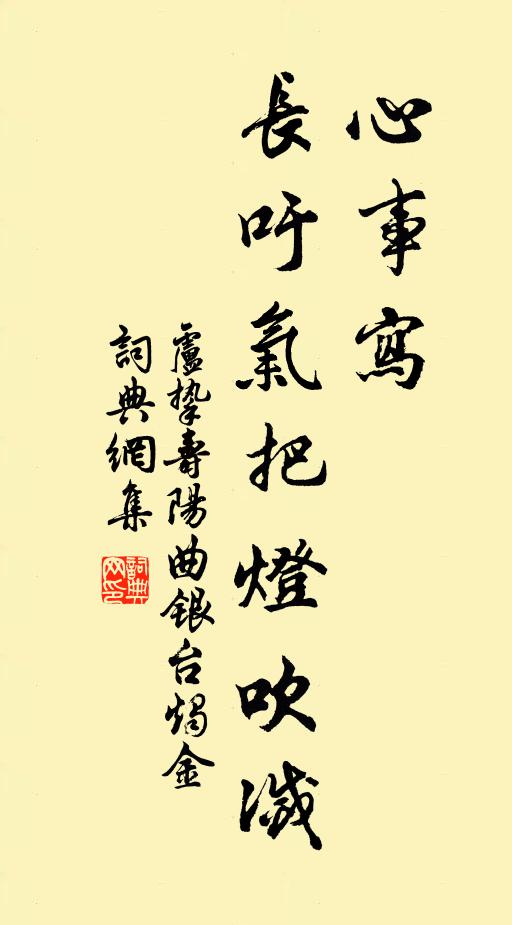 心事寫
長吁氣把燈吹滅
盧摯壽陽曲銀台燭金
詞典網集
詞典網印